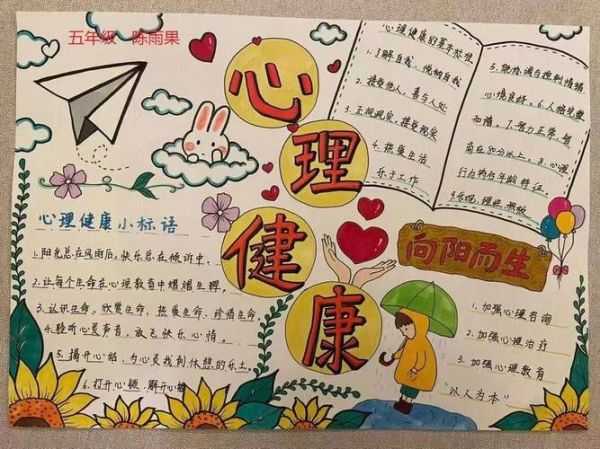 五年级 陈雨果
心理健康
心理健康小标语
1.阳光总在风雨后,快乐总在倾诉中.
2.让每个生命在心理教育中熠熠生辉.
3.认识生命、欣赏生命、热爱生命、珍惜生命.
4.聆听心灵声音,放飞快乐心情.
5.揭开心结,为心灵找到休憩的乐土.
6.打开心锁,解开心结
心理健康的基本标准
1.了解自我、悦纳自我
2.接受他人,善与人处
3.正视现实,接受现实
4.热爱生活
乐于工作
5.能协调与控制情绪
心境良好.6.人格完整
和谐.7.智力正常,智
商在80分以上.8.心理
行为符合年龄特征.
向阳而生
1.加强心理咨询
2.加强心理治疗
3.加强心理教育
"以人为本"